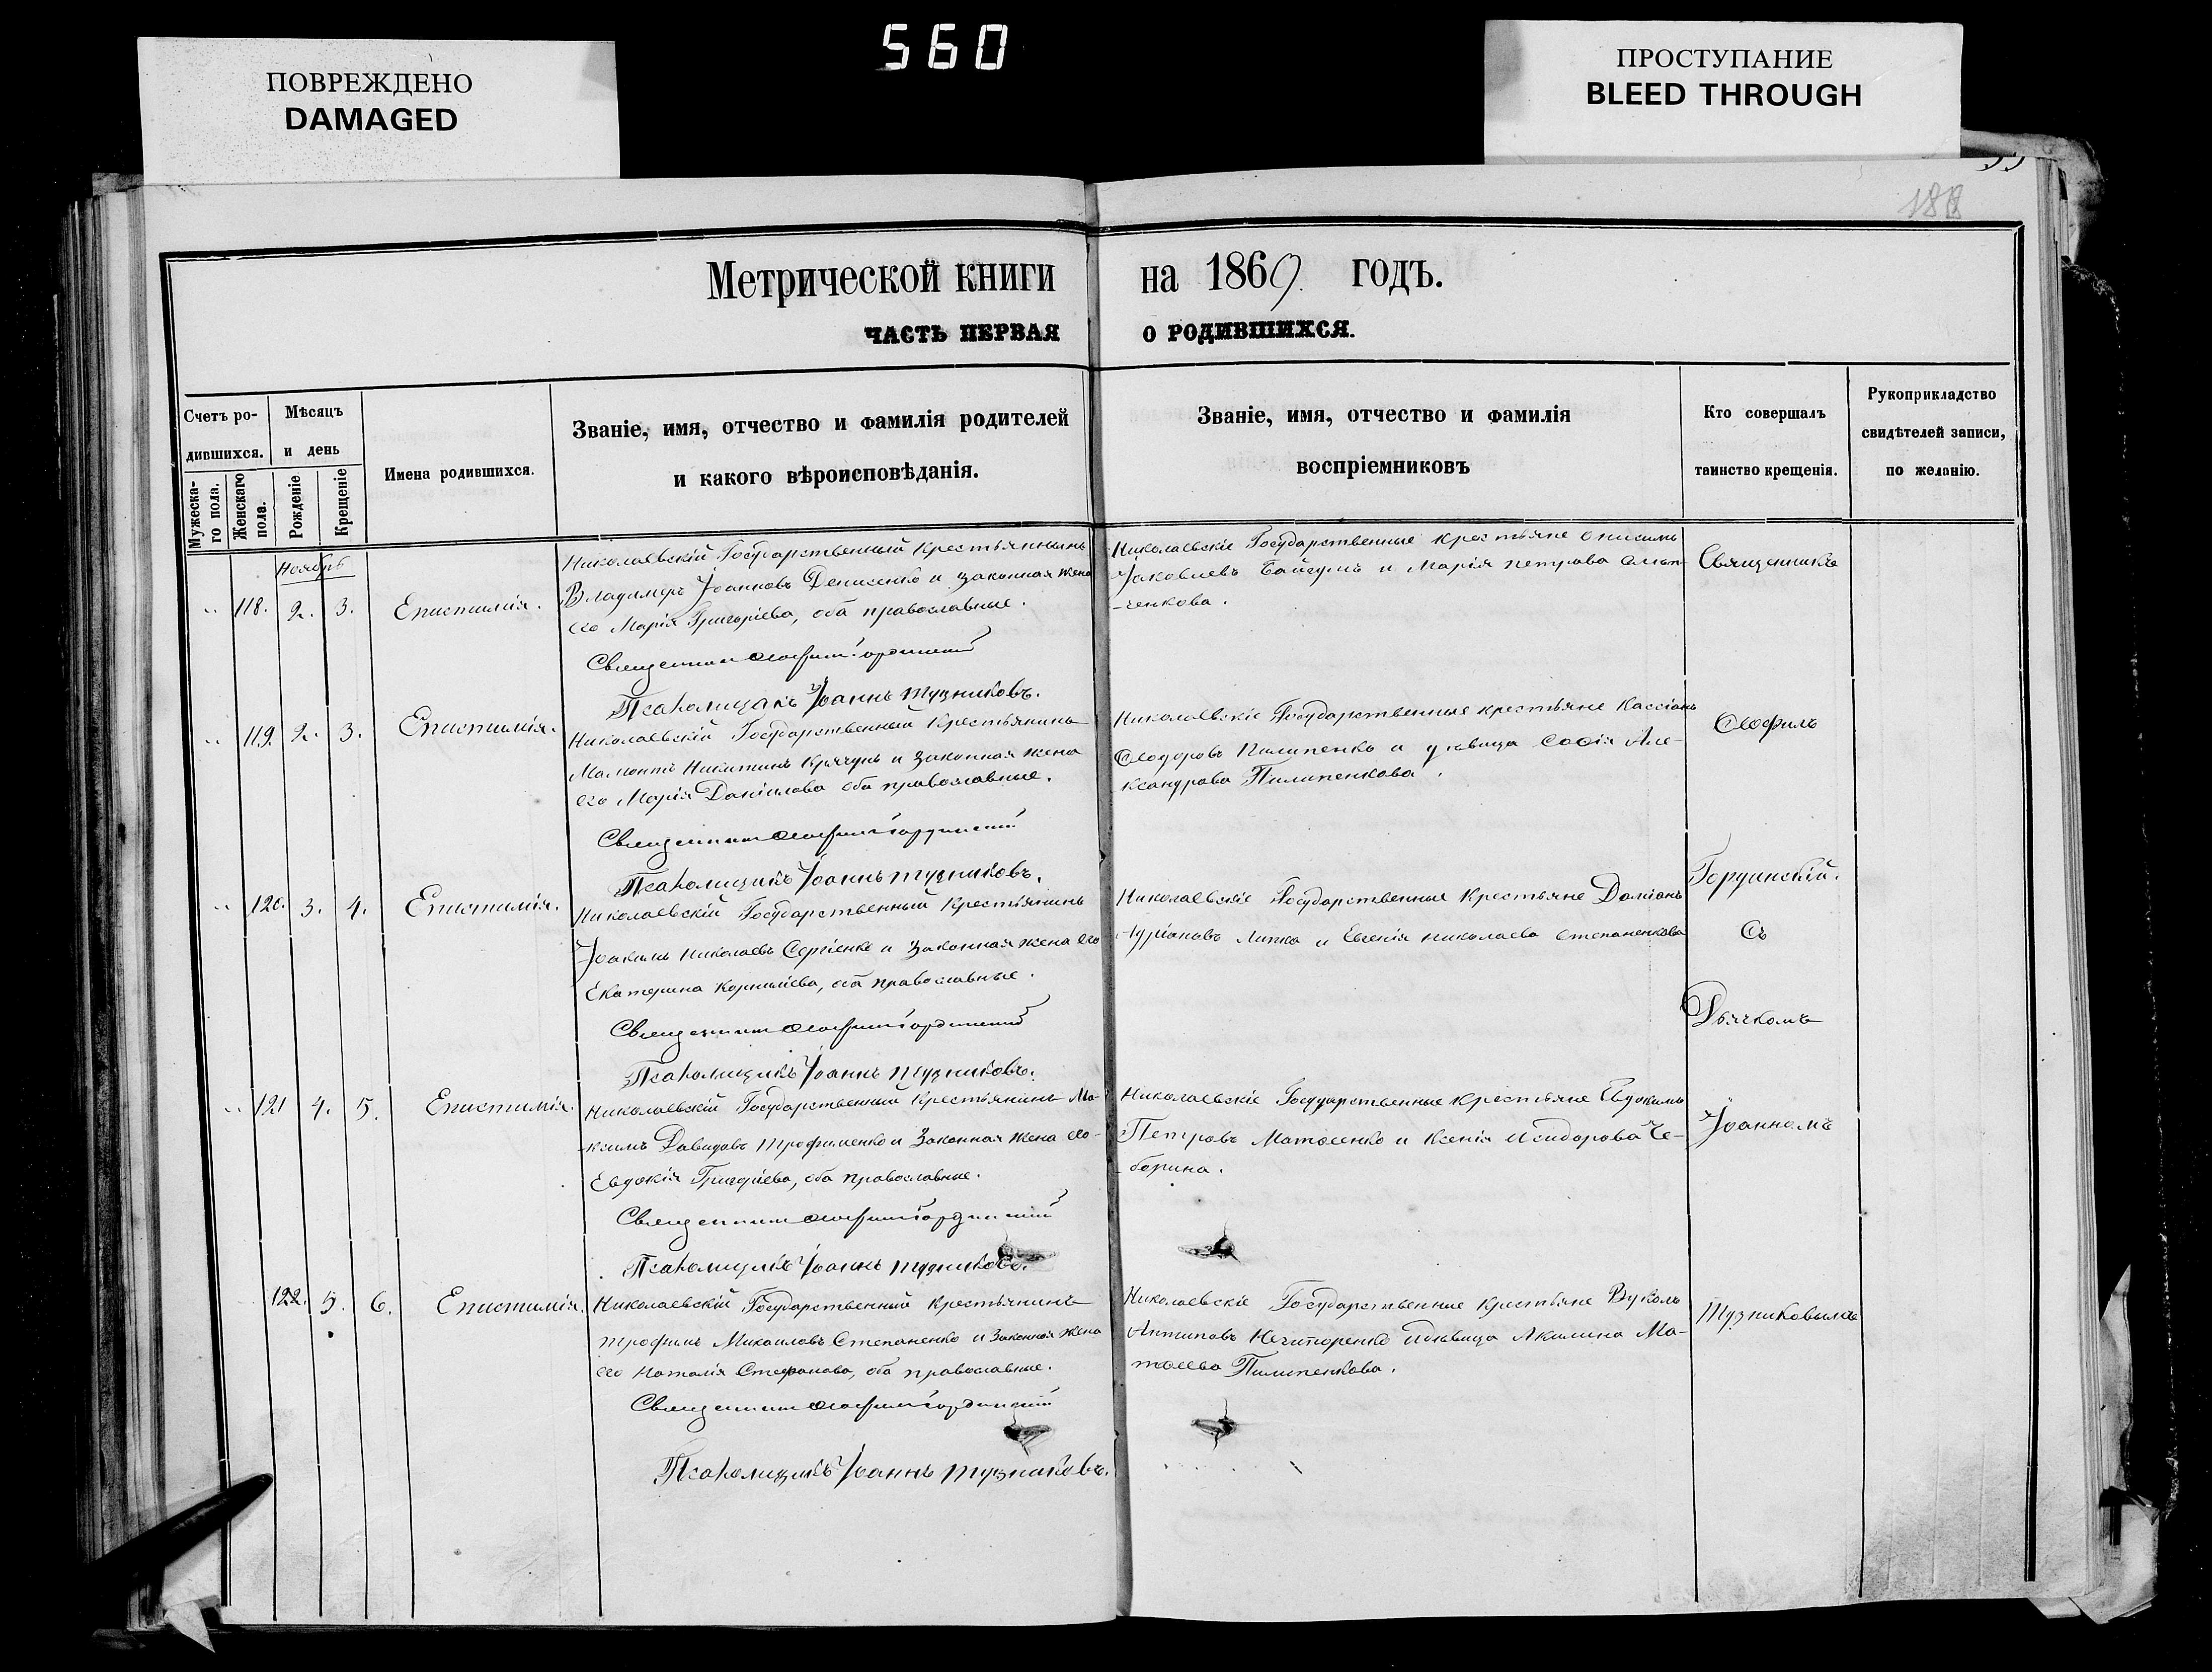 560
ПОВРЕЖДЕНО
DAMAGED
ПРОСТУПАНИЕ
BLEED THROUGH
Метрической книги на 1869 годъ.
ЧАСТЬ ПЕРВАЯ О РОДИВШИХСЯ.
Счетъ родившихся.
Мужеска-го пола.
Женскаго пола.
Мѣсяцъ и день
Рожденіе
Крещеніе
Имена родившихся.
Званіе, имя, отчество и фамилія родителей
и какого вѣроисповѣданія.
Званіе, имя, отчество и фамилія
воспріемниковъ
Кто совершалъ
таинство крещенія.
Рукоприкладство
свидѣтелей записи,
по желанію.
Ноябрь
„ 118. 2. 3. Епистимія.
Николаевскій Государственный крестьянинъ
Владимеръ Іоанновъ Денисенко и законная жена
его Марія Григоріева, оба православные.
Священникъ Ѳеофилъ Гординскій
Псаломщикъ Іоаннъ Тузниковъ.
Николаевскіе Государственные крестьяне Онисимъ
Іаковлевъ Байгушъ и Марія Петрова
-ченкова.
Священникъ
„ 119. 2. 3. Епистимія.
Николаевскій Государственный крестьянинъ
Мамонтъ Никитинъ Крячунъ и законная жена
его Марія Даніилова оба православные.
Священникъ Ѳеофилъ Гординскій
Псаломщикъ Іоаннъ Тузниковъ.
Николаевскіе Государственные крестьяне Кассіанъ
Ѳеодоровъ Пилипенко и дѣвица Софія Але-
ксандрова Пилипенкова.
Ѳеофилъ
„ 120. 3. 4. Епистимія.
Николаевскій Государственный крестьянинъ
Іоакимъ Николаевъ Сергіенко и законная жена его
Екатерина Корниліева, оба православные.
Священникъ Ѳеофилъ Гординскій
Псаломщикъ Іоаннъ Тузниковъ.
Николаевскіе Государственные крестьяне Даміанъ
Адріановъ Липка и Евгенія Николаева Степаненкова
Гординскій.
Съ
Дьячкомъ
„ 121 4. 5. Епистимія.
Николаевскій Государственный крестьянинъ Ма-
ксимъ Давидовъ Трофименко и законная жена его-
Евдокія Григоріева, оба православные.
Священникъ Ѳеофилъ Гординскій
Псаломщикъ Іоаннъ Тузниковъ.
Николаевскіе Государственные крестьяне Евдокимъ
Петровъ Матвеенко и Ксенія Исидорова Че-
-борина.
Іоанномъ
122. 5. 6. Епистимія.
Николаевскій Государственный крестьянинъ
Трофимъ Михаиловъ Степаненко и законная жена
его Наталія Стефанова, оба православные.
Священникъ Ѳеофилъ Гординскій
Псаломщикъ Іоаннъ Тузниковъ.
Николаевскіе Государственные крестьяне Вуколъ
Антиповъ Нечипоренко и дѣвица Акилина Ма-
твеева Пилипенкова.
Тузниковымъ